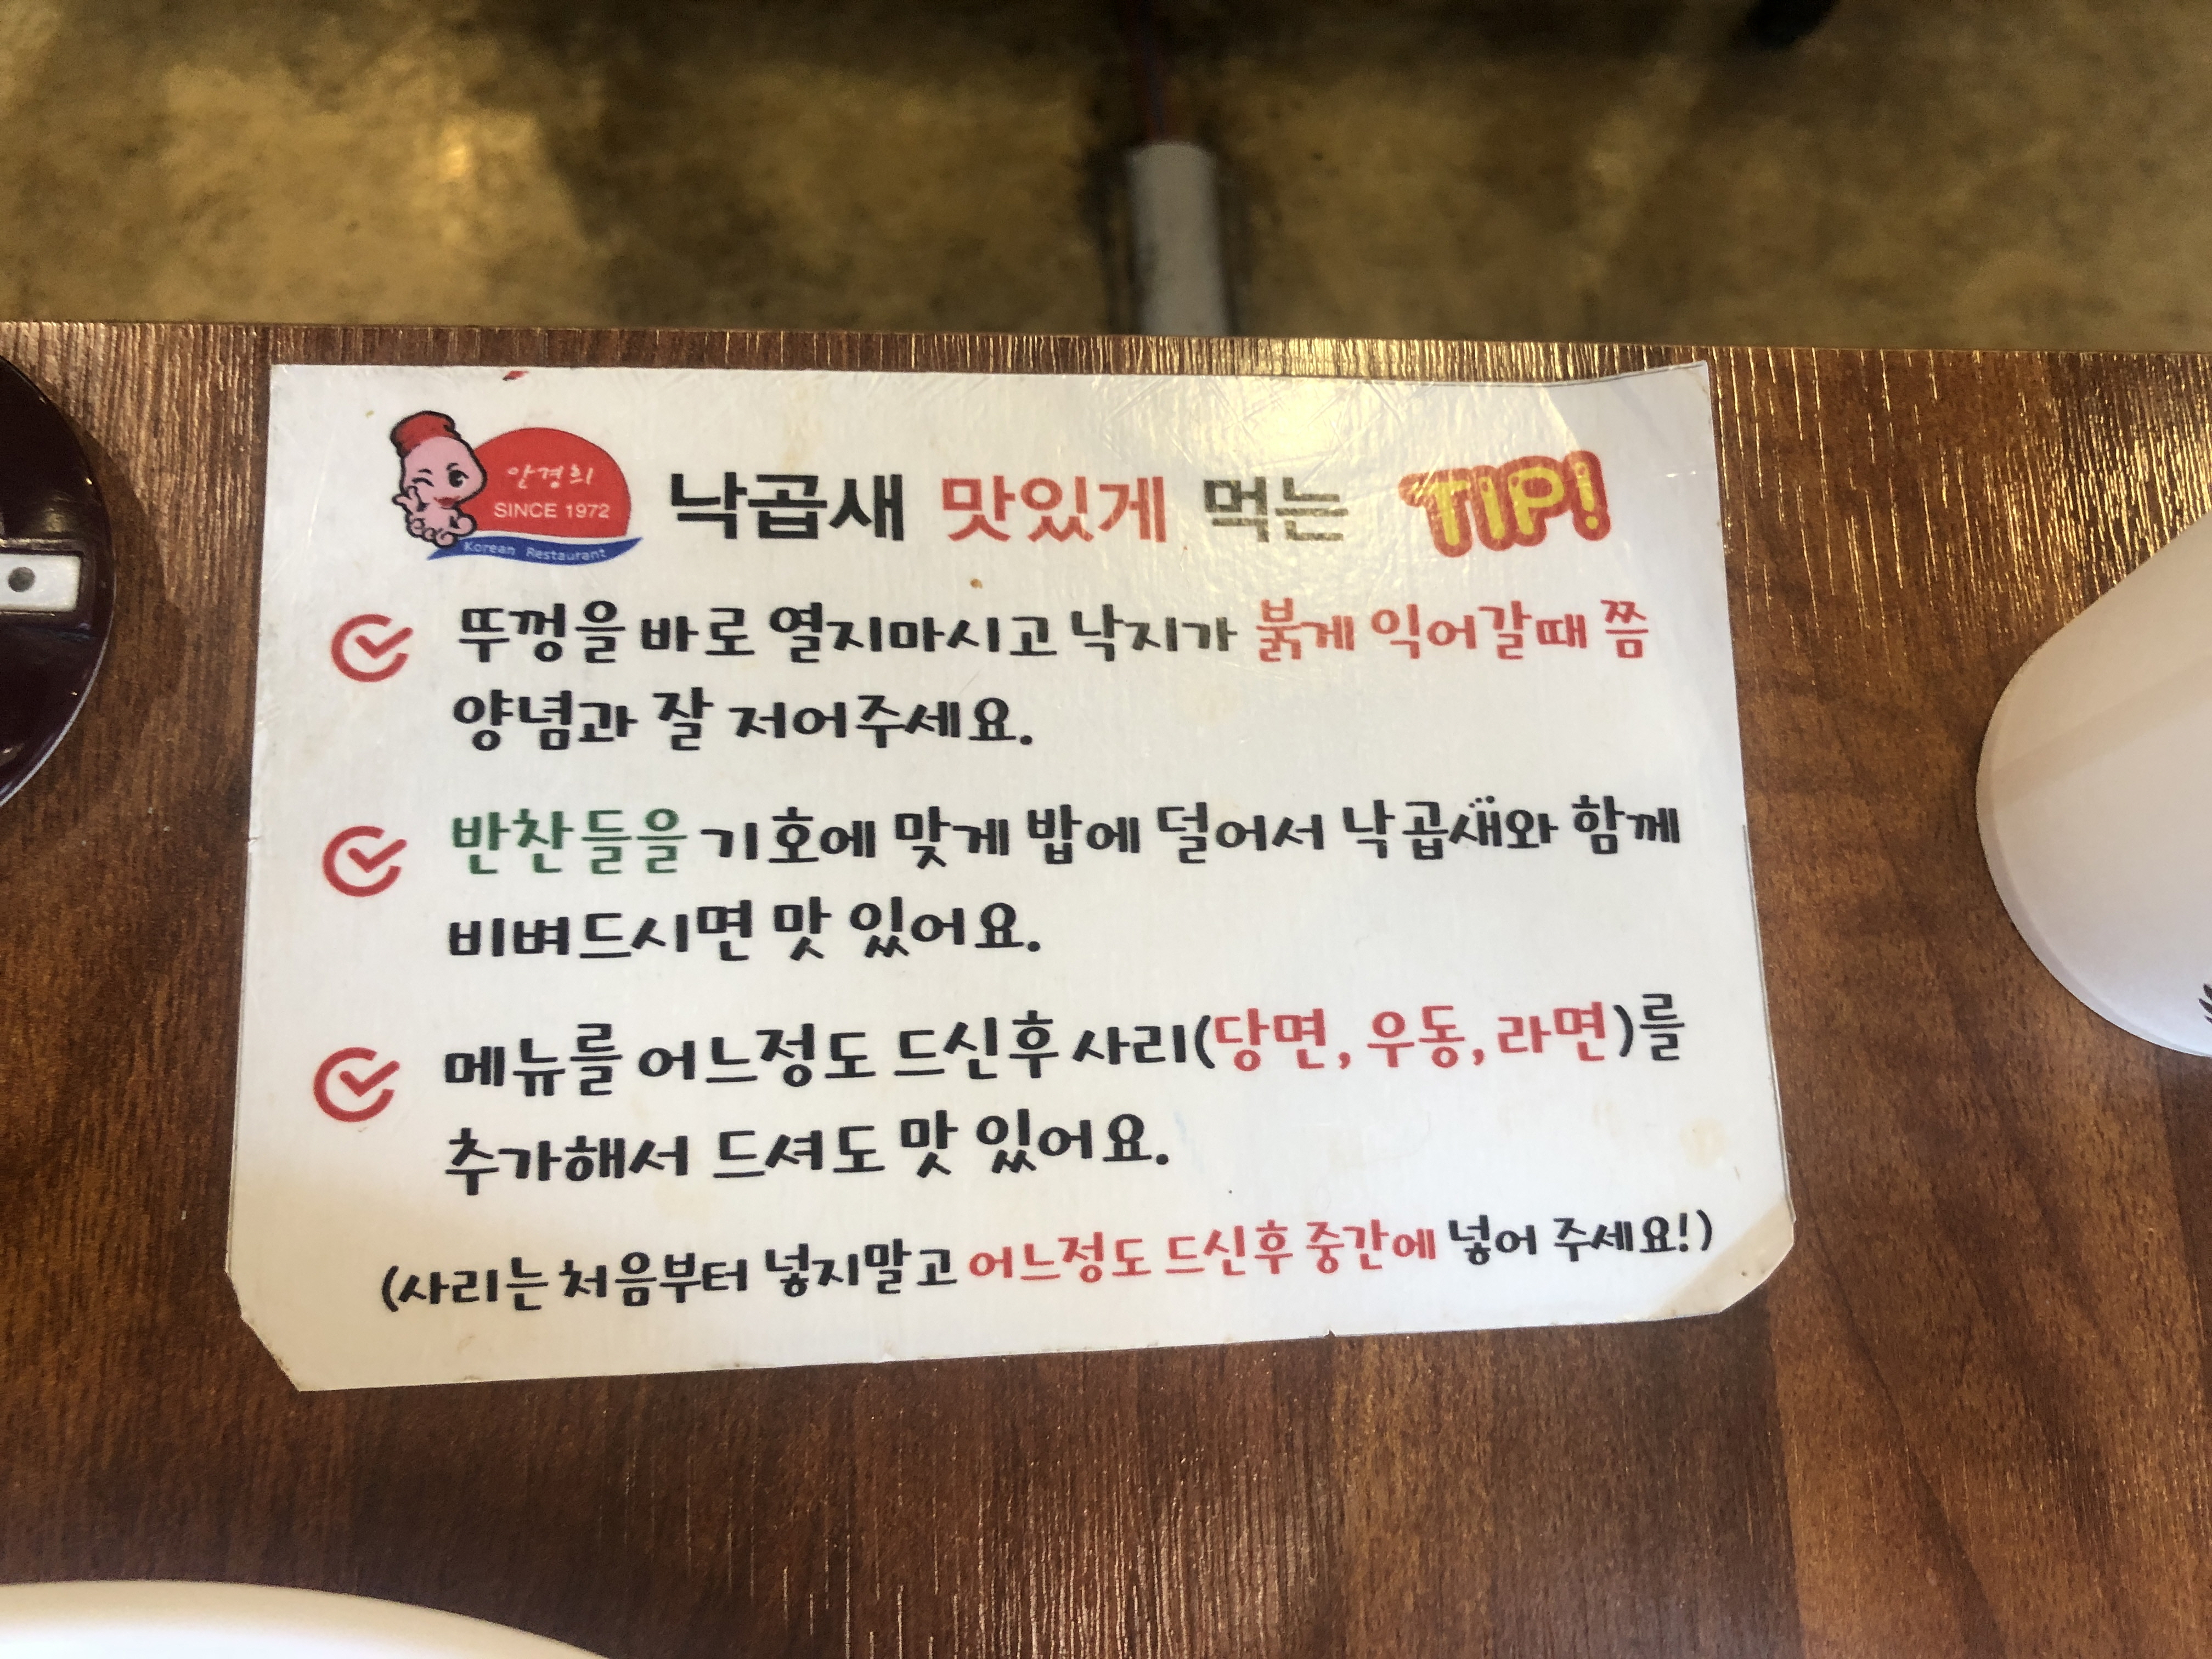 안경희
SINCE 1972
Korean Restaurant
낙곱새 맛있게 먹는 TIP!
뚜껑을 바로 열지마시고 낙지가 붉게 익어갈때 쯤
양념과 잘 저어주세요.
반찬들을 기호에 맞게 밥에 덜어서 낙곱새와 함께
비벼드시면 맛 있어요.
메뉴를 어느정도 드신후 사리(당면, 우동, 라면)를
추가해서 드셔도 맛 있어요.
(사리는 처음부터 넣지말고 어느정도 드신후 중간에 넣어 주세요!)